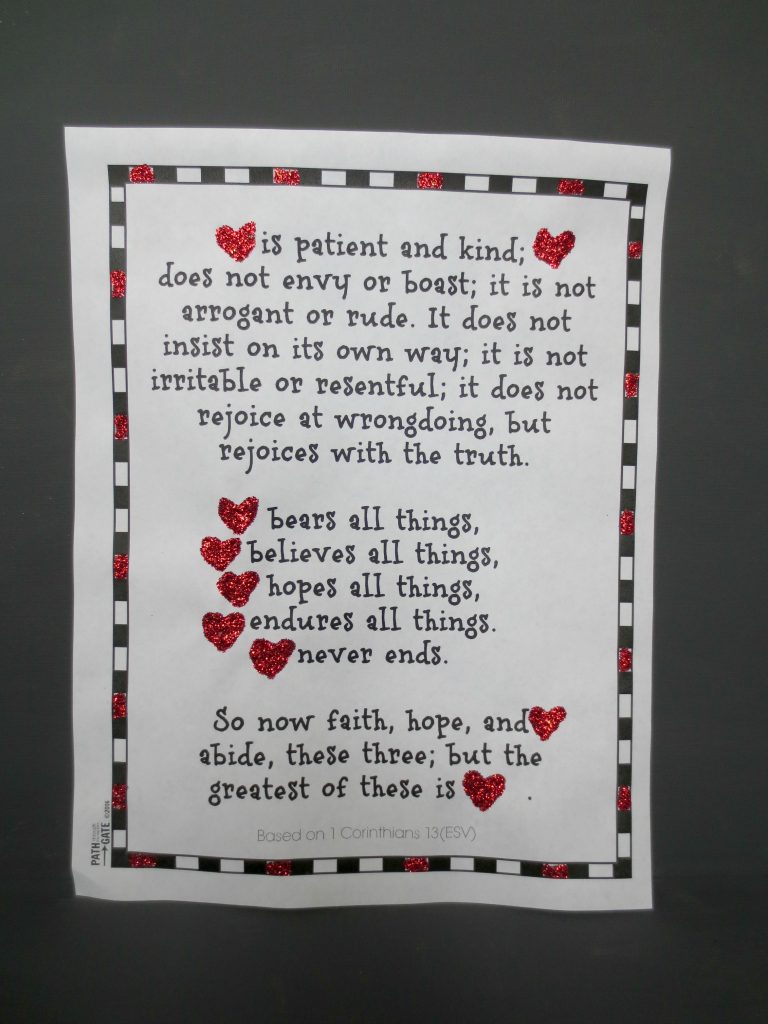 is patient and kind;
does not envy or boast; it is not
arrogant or rude. It does not
insist on its own way; it is not
irritable or resentful; it does not
rejoice at wrongdoing, but
rejoices with the truth.
bears all things,
believes all things,
hopes all things,
endures all things.
never ends.
So now faith, hope, and
abide, these three; but the
greatest of these is .
Based on 1 Corinthians 13(ESV)
PATH
GATE ©2014